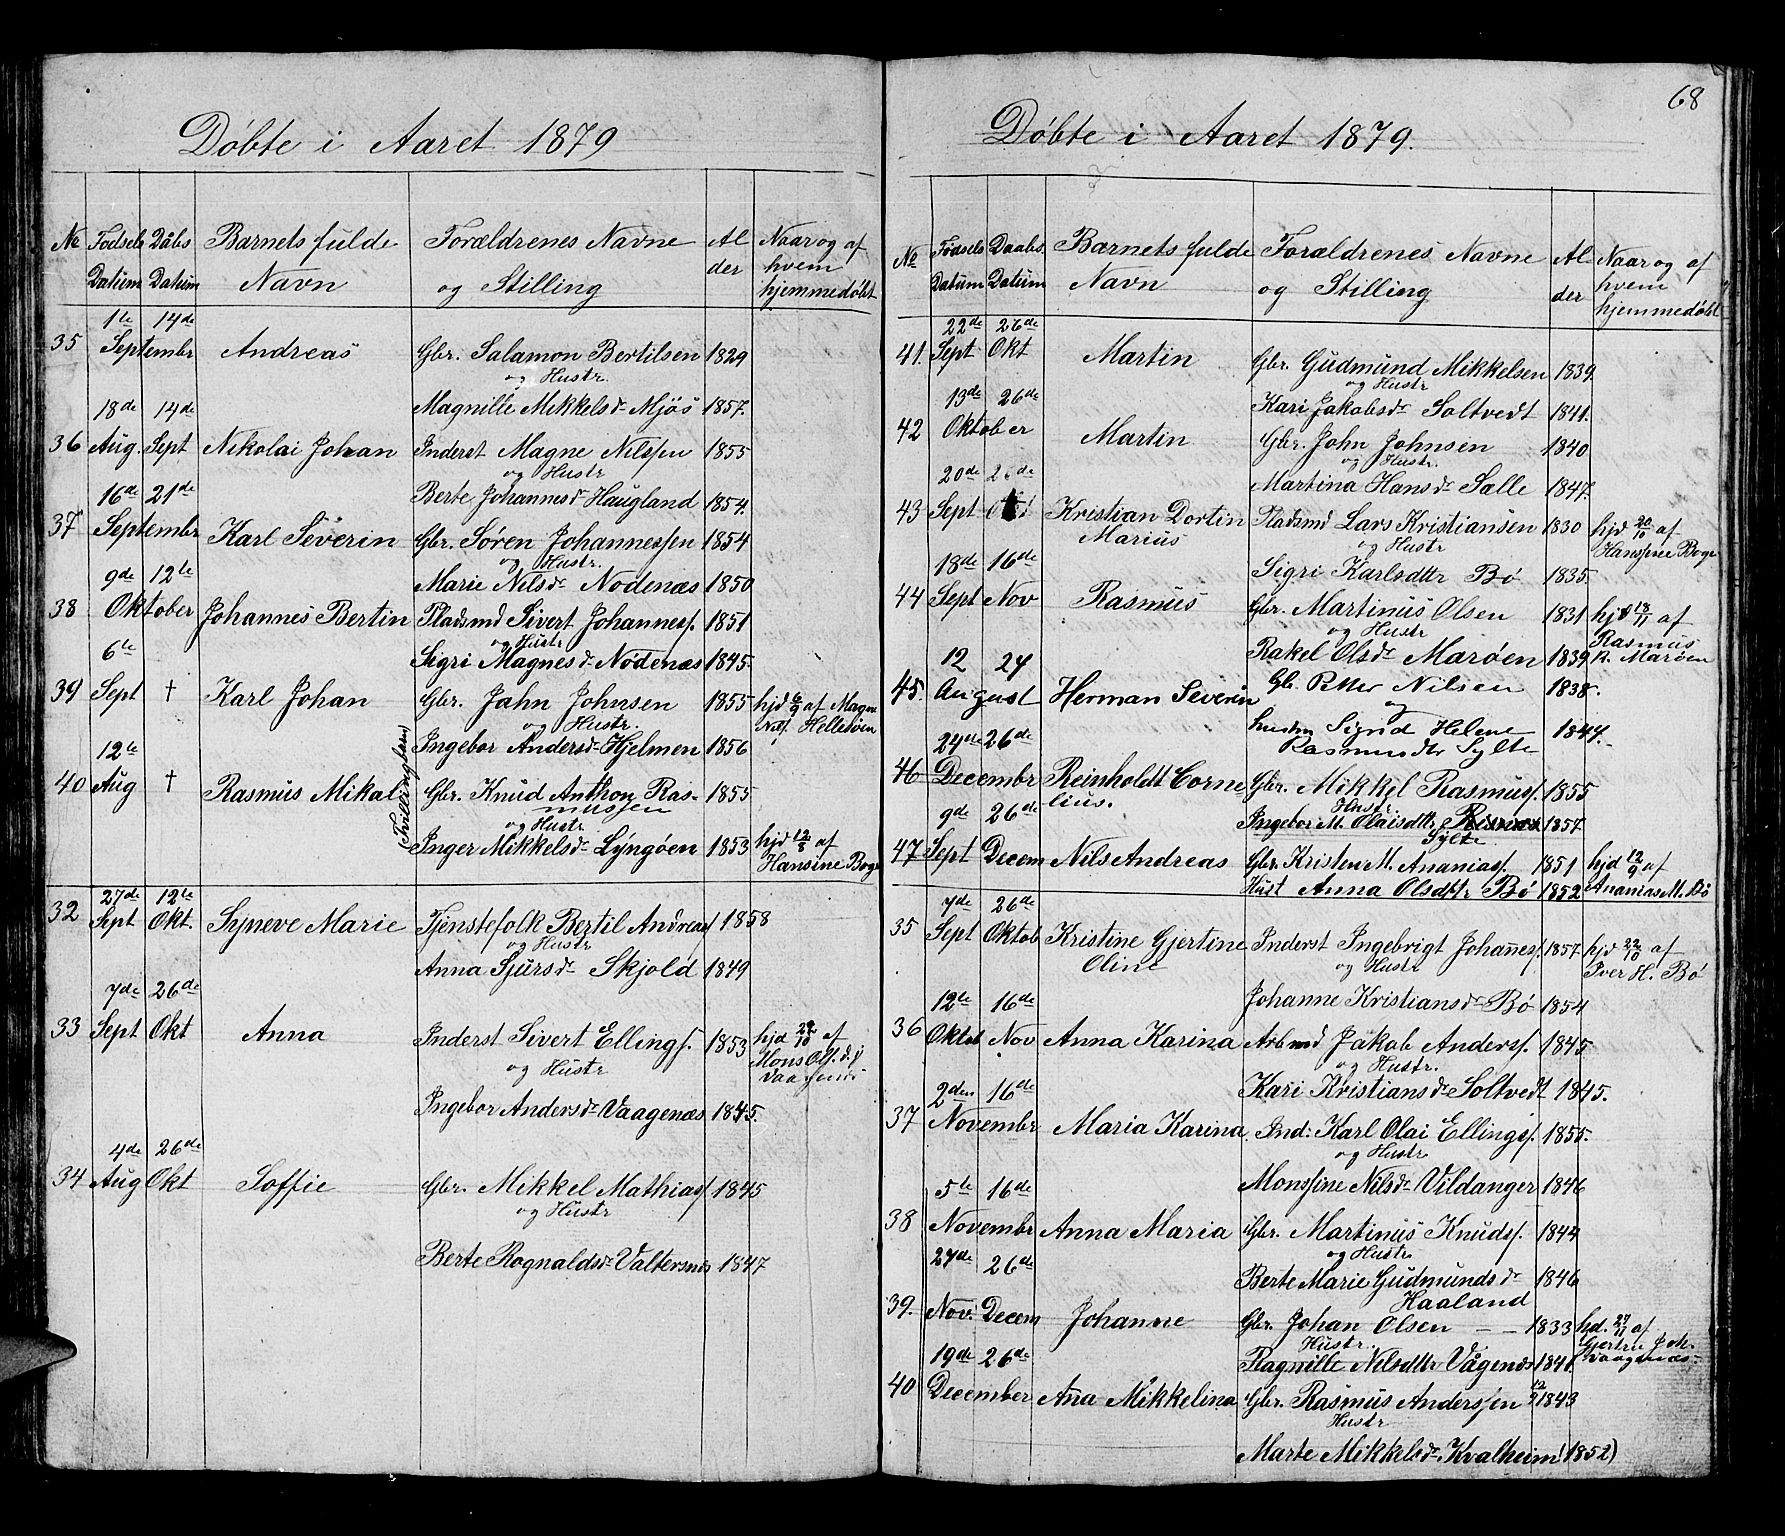 Døbte i Aaret 1879
№ Fødsels Dåbs Barnets fulde Forældrenes Navne Al Naar og af
Datum Datum Navn og Stilling der hvem
hjemmedøbt
1te 14de
35 September Andreas Gbr. Salamon Bertilsen 1829
og Hustr.
Magnille Mikkelsdr Mjøs 1857.
18de 14de
36 Aug. Sept Nikolai Johan Inderst Magne Nilssen 1855
og Hustr
Berte Johannesdr Haugland 1854.
16de 21de
37 Septembr Karl Severin Gbr. Søren Johannessen 1854
og Hustr.
Marie Nilsdr Nødenæs 1850
9de 12te
38 Oktober Johannes Bertin Pladsmd Sivert Johanness. 1851
og Hustr
Sigri Magnesdr Nødenæs 1845.
6te
39 Sept † Karl Johan Gbr. Jahn Johnsen 1855 hjd 6/9 af Magn
og Hustr. Nils. Hellesøen
Ingebor Andersdr Hjelmen 1856
12te
40 Aug † Rasmus Mikal (Tvillingbarn) Gbr. Knud Anthon Ras- 1855
mussen
og Hustr
Inger Mikkelsdr Lyngøen 1853 hjd 12/8 af
Hansine Boge
27de 12te
32 Sept Okt. Syneve Marie Tjenstefolk Bertil Andreas 1858
og Hustr
Anna Sjursdr Skjold 1849
7de 26de
33 Sept Okt Anna Inderst Sivert Ellings. 1853 hjd af
og Hustr Mons
Ingebor Andersdr Vaagenæs 1845.
4de 26de
34 Aug Okt Soffie Gbr. Mikkel Mathias 1845
og Hustr
Berte Rognaldsdr Valtersnes 1847
68
Døbte i Aaret 1879.
№ Fødsels Daabs Barnets fulde Forældrenes Navne Al Naar og af
Datum Datum Navn og Stilling der hvem
hjemmedøbt
22de 26de
41. Sept Okt Martin Gbr. Gudmund Mikkelsen 1839.
og Hustr
Kari Jakobsdr Soltvedt 1841.
13de 26de
42 Oktober Martin Gbr. John Johnsen 1840
og Hustr.
Martina Hansdr Sælle 1847.
20de 26de
43 Sept Okt Kristian Dortin Pladsmd Lars Kristiansen 1830 hjd 20/10 af
Marius og Hustr Hansine Boge
Sigri Karlsdttr Bø 1835.
18de 16de
44 Sept Nov Rasmus Gbr. Martinus Olsen 1831 hjd 18/11 af
og Hustr Rasmus
Rakel Olsdr Marøen 1839 R. Marøen
12 24
45. August Herman Severin Gb. Petter Nilsen 1838.
og
hustru Sigrid Helene 1844.
Rasmusdtr Sylte
24de 26de
46 Decembr Reinholdt Corne Gbr. Mikkel Rasmuss. 1855
lius. Hustr.
Ingebor M. Olaisdtr 1857
Sylte
9de 26de
47 Sept Decem Nils Andreas Gbr. Kristen M. Ananiass. 1851 hjd 12/9 af
Hust Anna Olsdttr Bø 1852 Ananias M. Bø
7de 26de
35 Sept Oktob Kristine Gjertine Inderst Ingebrigt Johañess. 1857 hjd 22/10 af
Oline og Hustr Iver H. Bø
Johanne Kristiansdr Bø 1854
12te 16de
36 Oktob Nov Anna Karina Arbmd Jakob Anders. 1845
og Hustr.
Kari Kristiansdr Soltvedt 1845.
2den 16de
37 Novembr Maria Karina Ind: Karl Olai Ellings. 1855.
og Hustr
Monssine Nilsdr Vildanger 1846
5te 16de
38 Novembr Anna Maria Gbr. Martinus Knuds. 1844
og Hustr
Berte Marie Gudmundsdr 1846
Haaland
27de 26de
39. Nov. Decem Johanne Gbr. Johan Olsen — — 1833 hd. 27/11 af
Hustr. Gjertru Joh.
Ragnille Nilsdttr Vågenæs 1841 Vaagenæs
19de 26de
40 December Aña Mikkelina Gbr. Rasmus Anderssen 1843
Hustr
Marte Mikkelsdr. Kvalheim (1852)